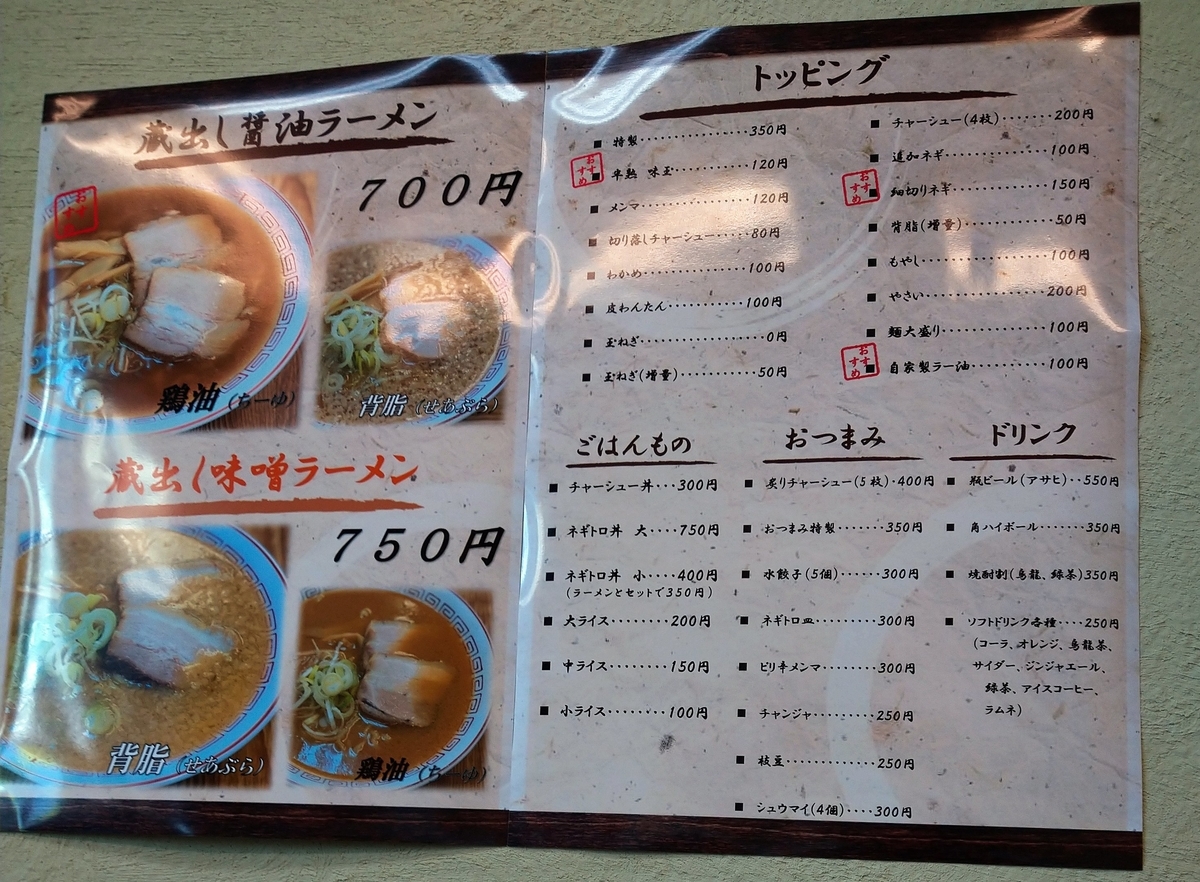 蔵出し醤油ラーメン
７００円
おすすめ
鶏油（ちーゆ）
背脂（せあぶら）
蔵出し味噌ラーメン
７５０円
背脂（せあぶら）
鶏油（ちーゆ）
トッピング
■ 特製･･････････････350円
おすすめ
■ 半熟 味玉･･････････120円
■ メンマ･･････････････120円
■ 切り落しチャーシュー･････80円
■ わかめ･････････････100円
■ 皮わんたん･･････････100円
■ 玉ねぎ････････････････0円
■ 玉ねぎ(増量)･･････････50円
■ チャーシュー(4枚)･･･････200円
■ 追加ネギ･･････････････100円
おすすめ
■ 細切りネギ････････････150円
■ 背脂(増量)･･･････････50円
■ もやし････････････････100円
■ やさい････････････････200円
■ 麺大盛り･････････････100円
おすすめ
■ 自家製ラー油･･････････100円
ごはんもの
■ チャーシュー丼･･･300円
■ ネギトロ丼 大････750円
■ ネギトロ丼 小････400円
(ラーメンとセットで350円)
■ 大ライス････････200円
■ 中ライス････････150円
■ 小ライス････････100円
おつまみ
■ 炙りチャーシュー(5枚)･400円
■ おつまみ特製･･･････350円
■ 水餃子(5個)･･････300円
■ ネギトロ皿････････300円
■ ピリ辛メンマ･･･････300円
■ チャンジャ･････････250円
■ 枝豆････････････250円
■ シュウマイ(4個)････300円
ドリンク
■ 瓶ビール(アサヒ)･･550円
■ 角ハイボール･･･････350円
■ 焼酎割(烏龍、緑茶)350円
■ ソフトドリンク各種････250円
(コーラ、オレンジ、烏龍茶、
サイダー、ジンジャエール、
緑茶、アイスコーヒー、
ラムネ)